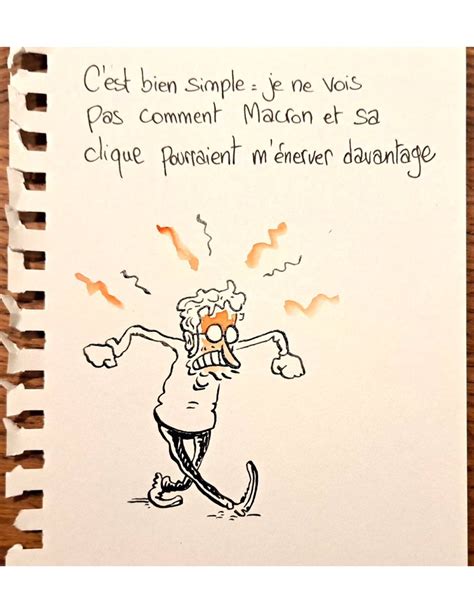 C'est bien simple : je ne vois
pas comment Macron et sa
clique pourraient m'énerver davantage